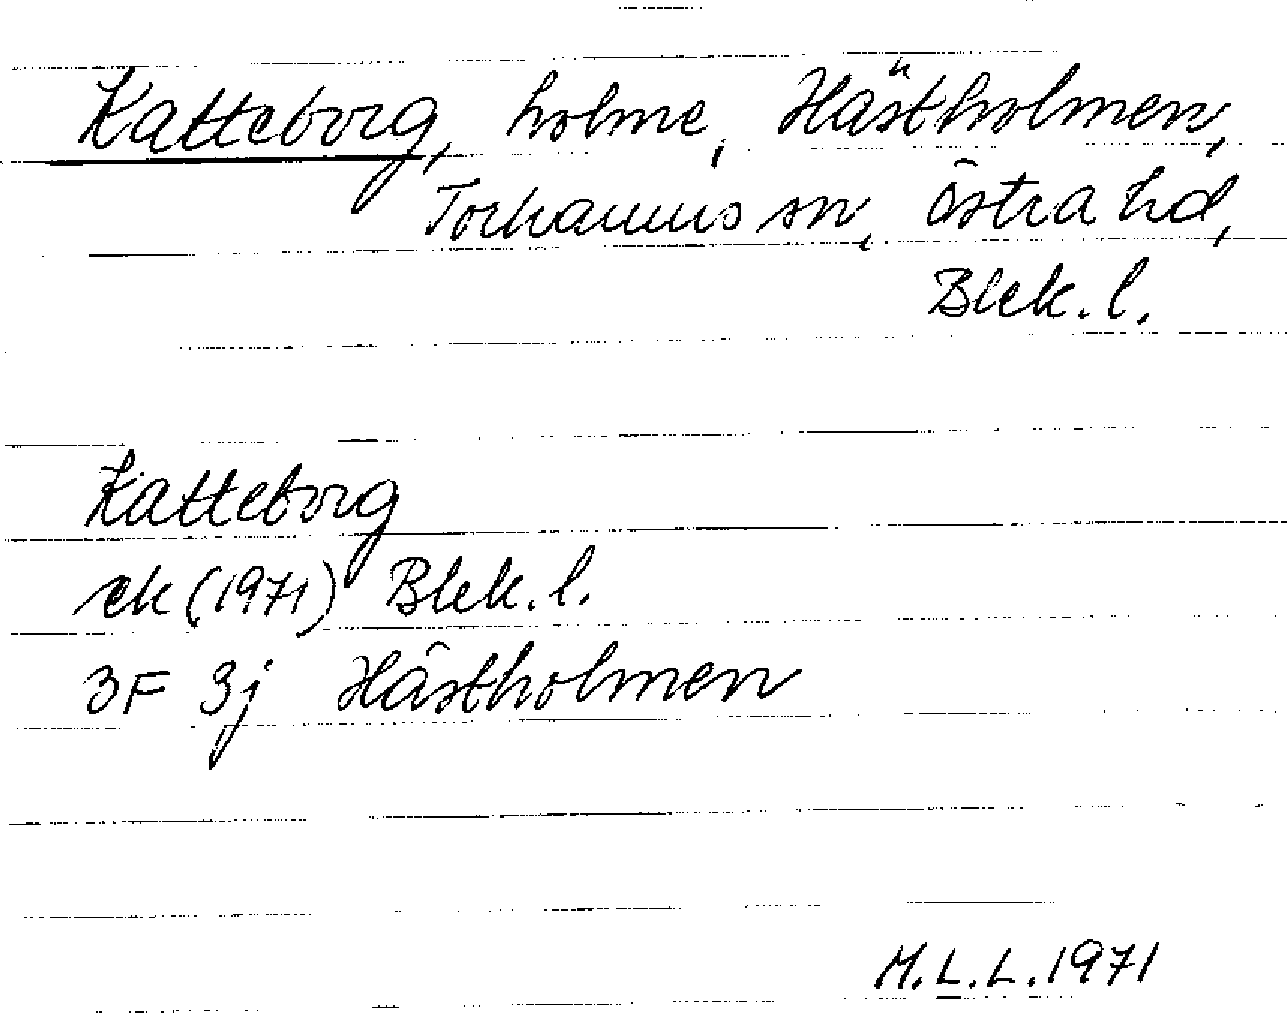 Katteborg, holme, Hästholmen,
Torhamns sn, Östra hd,
Blek. l.
Katteborg
ek (1971) Blek. l.
3F 3j Hästholmen
M.L.L. 1971